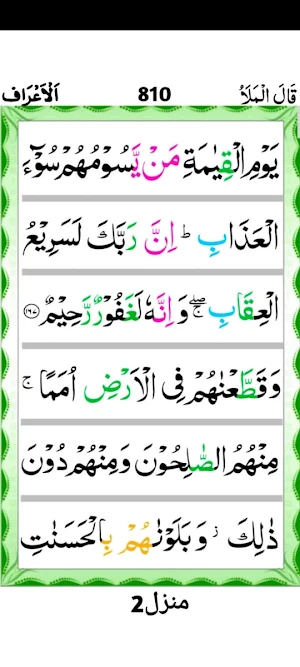 قَالَ الْمَلَاُ 810 اَلْاَعْرَاف
يَوْمِ الْقِيٰمَةِ مَنْ يَّسُوْمُهُمْ سُوْٓءَ
الْعَذَابِ ؕ اِنَّ رَبَّكَ لَسَرِيْعُ
الْعِقَابِ ۖۚ وَ اِنَّهٗ لَغَفُوْرٌ رَّحِيْمٌ ﴿۱۶۷﴾
وَ قَطَّعْنٰهُمْ فِى الْاَرْضِ اُمَمًا ۚ
مِنْهُمُ الصّٰلِحُوْنَ وَ مِنْهُمْ دُوْنَ
ذٰلِكَ ؗ وَ بَلَوْنٰهُمْ بِالْحَسَنٰتِ
منزل2